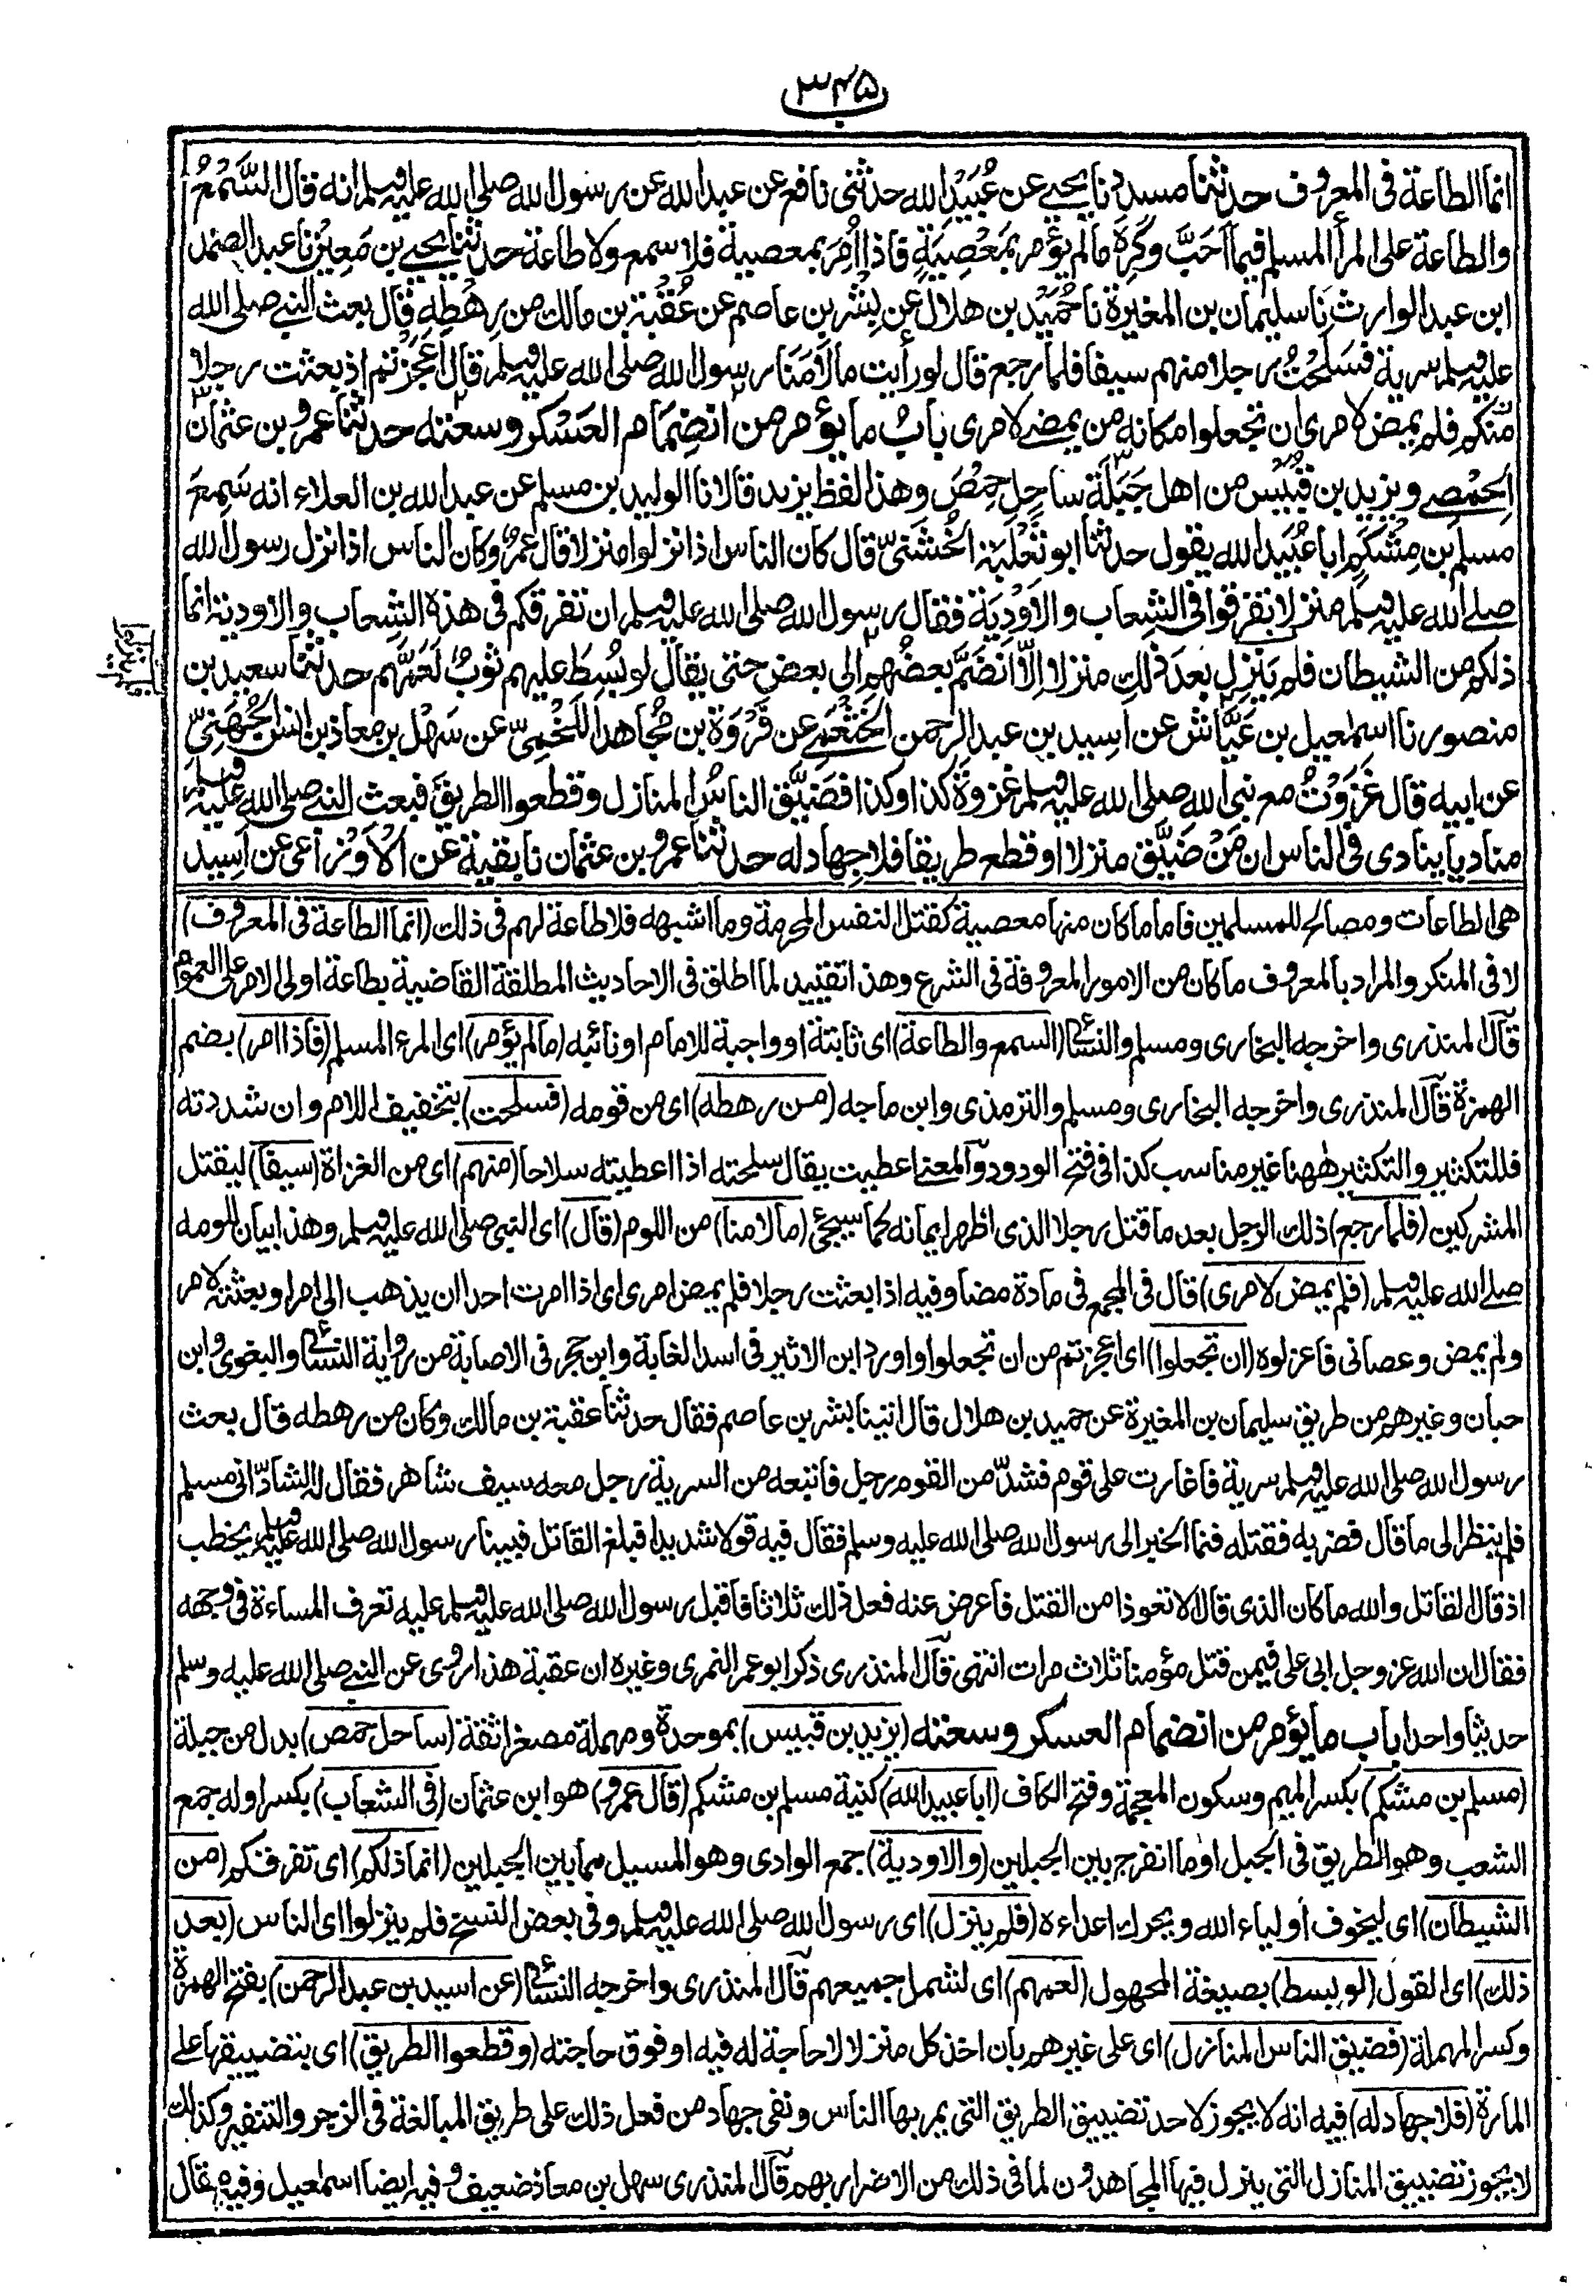 ۳۴۵
انما الطاعة فى المعروف حدثنا مسدد نا يحيى عن عُبَيْد الله حدثنى نافع عن عبد الله عن رسول الله صلى الله عليه وسلم انه قال السَّمْعُ
والطاعة على المرأ المسلم فيما اَحَبَّ وكَرِهَ ما لم يؤمر بمَعْصِيَةٍ فاذا اُمِرَ بمعصية فلا سمع ولا طاعة حدثنا يحيى بن مَعِيْن نا عبد الصمد
ابن عبد الوارث نا سليمان بن المغيرة نا حُمَيْد بن هلال عن بِشْر بن عاصم عن عُقْبَة بن مالك من رَهْطِه قال بعث النبى صلى الله
عليه وسلم سرية فسَلَحْتُ رجلا منهم سيفا فلما رجع قال لو رأيت ما لَامَنَا رسول الله صلى الله عليه وسلم قال اَعَجَزْتم اذ بعثت رجلا
منكم فلم يمض لامرى ان تجعلوا مكانه من يمضى لامرى بابُ ما يؤمر من انضِمَام العَسْكر وسعته حدثنا عمرو بن عثمان
الحِمْصى ويزيد بن قُبَيْس من اهل جَبَلَة ساحِلِ حِمْصَ وهذا لفظ يزيد قالا نا الوليد بن مسلم عن عبد الله بن العلاء انه سَمِعَ
مسلم بن مِشْكَم ابا عُبَيْد الله يقول حدثنا ابو ثَعْلَبَة الخُشَنىّ قال كان الناس اذا نزلوا منزلا قال عمرٌو وكان الناس اذا نزل رسول الله
صلى الله عليه وسلم منزلا تفرقوا فى الشِعاب والاَوْدِيَة فقال رسول الله صلى الله عليه وسلم ان تفرقكم فى هذه الشِعاب والاودية انما
ذلكم من الشيطان فلم يَنْزِل بعدَ ذلِك منزلا اِلّا اَنضَمَّ بعضُهم الى بعض حتى يقال لو بُسِطَ عليهم ثوبٌ لَعَمَّهم حدثنا سعيد بن
منصور نا اسمعيل بن عَيَّاش عن اسِيد بن عبد الرحمن الخَثْعَمى عن فَرْوَة بن مُجاهد اللَخْمِىّ عن سَهْل بن معاذ بن انس الجُهَنِىّ
عن ابيه قال غَزَوْتُ مع نبى الله صلى الله عليه وسلم غزوةَ كذا وكذا فضَيَّق الناسُ المنازل وقطعوا الطريقَ فبعث النبى صلى الله عليه وسلم
مناديا ينادى فى الناس ان مَنْ ضَيَّق منزلا او قطع طريقا فلا جِهاد له حدثنا عمرو بن عثمان نا بقية عن الاَوْزاعى عن اَسِيد
هى الطاعات ومصالح للمسلمين فاما ما كان منها معصية كقتل النفس المحرمة وما اشبهه فلا طاعة لهم فى ذلك (انما الطاعة فى المعروف)
لا فى المنكر والمراد بالمعروف ما كان من الامور المعروفة فى الشرع وهذا تقييد لما اطلق فى الاحاديث المطلقة القاضية بطاعة اولى الامر على العموم
قال المنذرى واخرجه البخارى ومسلم والنسائى (السمع والطاعة) اى ثابتة او واجبة للامام او نائبه (ما لم يؤمر) اى المرء المسلم (فاذا امر) بضم
الهمزة قال المنذرى واخرجه البخارى ومسلم والترمذى وابن ماجه (من رهطه) اى من قومه (فسلحت) بتخفيف اللام وان شددته
فللتكثير والتكثير ههنا غير مناسب كذا فى فتح الودود والمعنى اعطيت يقال سلحته اذا اعطيته سلاحا (منهم) اى من الغزاة (سيفا) ليقتل
المشركين (فلما رجع) ذلك الرجل بعد ما قتل رجلا الذى اظهر ايمانه كما سيجئ (ما لامنا) من اللوم (قال) اى النبى صلى الله عليه وسلم وهذا بيان للومه
صلى الله عليه وسلم (فلم يمض لامرى) قال فى المجمع فى مادة مضا وفيه اذا بعثت رجلا فلم يمض امرى اى اذا امرت احدا ان يذهب الى امر او بعثته لامر
ولم يمض وعصانى فاعزلوه (ان تجعلوا) اى اعجزتم من ان تجعلوا واورد ابن الاثير فى اسد الغابة وابن حجر فى الاصابة من رواية النسائى والبغوى وابن
حبان وغيرهم من طريق سليمان بن المغيرة عن حميد بن هلال قال اتينا بشر بن عاصم فقال حدثنا عقبة بن مالك وكان من رهطه قال بعث
رسول الله صلى الله عليه وسلم سرية فاغارت على قوم فشدّ من القوم رجل فاتبعه من السرية رجل معه سيف شاهر فقال له الشادّ انى مسلم
فلم ينظر الى ما قال فضربه فقتله فنما الخبر الى رسول الله صلى الله عليه وسلم فقال فيه قولا شديدا فبلغ القاتل فبينا رسول الله صلى الله عليه وسلم يخطب
اذ قال القاتل والله ما كان الذى قال الا تعوذا من القتل فاعرض عنه فعل ذلك ثلاثا فاقبل رسول الله صلى الله عليه وسلم عليه تعرف المساءة فى وجهه
فقال ان الله عز وجل ابى على فيمن قتل مؤمنا ثلاث مرات انتهى قال المنذرى ذكر ابو عمر النمرى وغيره ان عقبة هذا روى عن النبى صلى الله عليه وسلم
حديثا واحدا باب ما يؤمر من انضمام العسكر وسعته (يزيد بن قبيس) بموحدة ومهملة مصغرا ثقة (ساحل حمص) بدل من جبلة
(مسلم بن مشكم) بكسر الميم وسكون المعجمة وفتح الكاف (ابا عبيد الله) كنية مسلم بن مشكم (قال عمرو) هو ابن عثمان (فى الشعاب) بكسر اوله جمع
الشعب وهو الطريق فى الجبل او ما انفرج بين الجبلين (والاودية) جمع الوادى وهو المسيل مما بين الجبلين (انما ذلكم) اى تفرقكم (من
الشيطان) اى ليخوف اولياء الله ويحرك اعداءه (فلم ينزل) اى رسول الله صلى الله عليه وسلم وفى بعض النسخ فلم ينزلوا اى الناس (بعد
ذلك) اى القول (لو بسط) بصيغة المجهول (لعمهم) اى لشمل جميعهم قال المنذرى واخرجه النسائى (عن اسيد بن عبد الرحمن) بفتح الهمزة
وكسر المهملة (فضيق الناس المنازل) اى على غيرهم بان اخذ كل منزلا لا حاجة له فيه او فوق حاجته (وقطعوا الطريق) اى بتضييقها على
المارة (فلا جهاد له) فيه انه لا يجوز لاحد تضييق الطريق التى يمر بها الناس ونفى جهاد من فعل ذلك على طريق المبالغة فى الزجر والتنفير وكذلك
لا يجوز تضييق المنازل التى ينزل فيها المجاهدون لما فى ذلك من الاضرار بهم قال المنذرى سهل بن معاذ ضعيف وفيه ايضا اسمعيل وفيه مقال